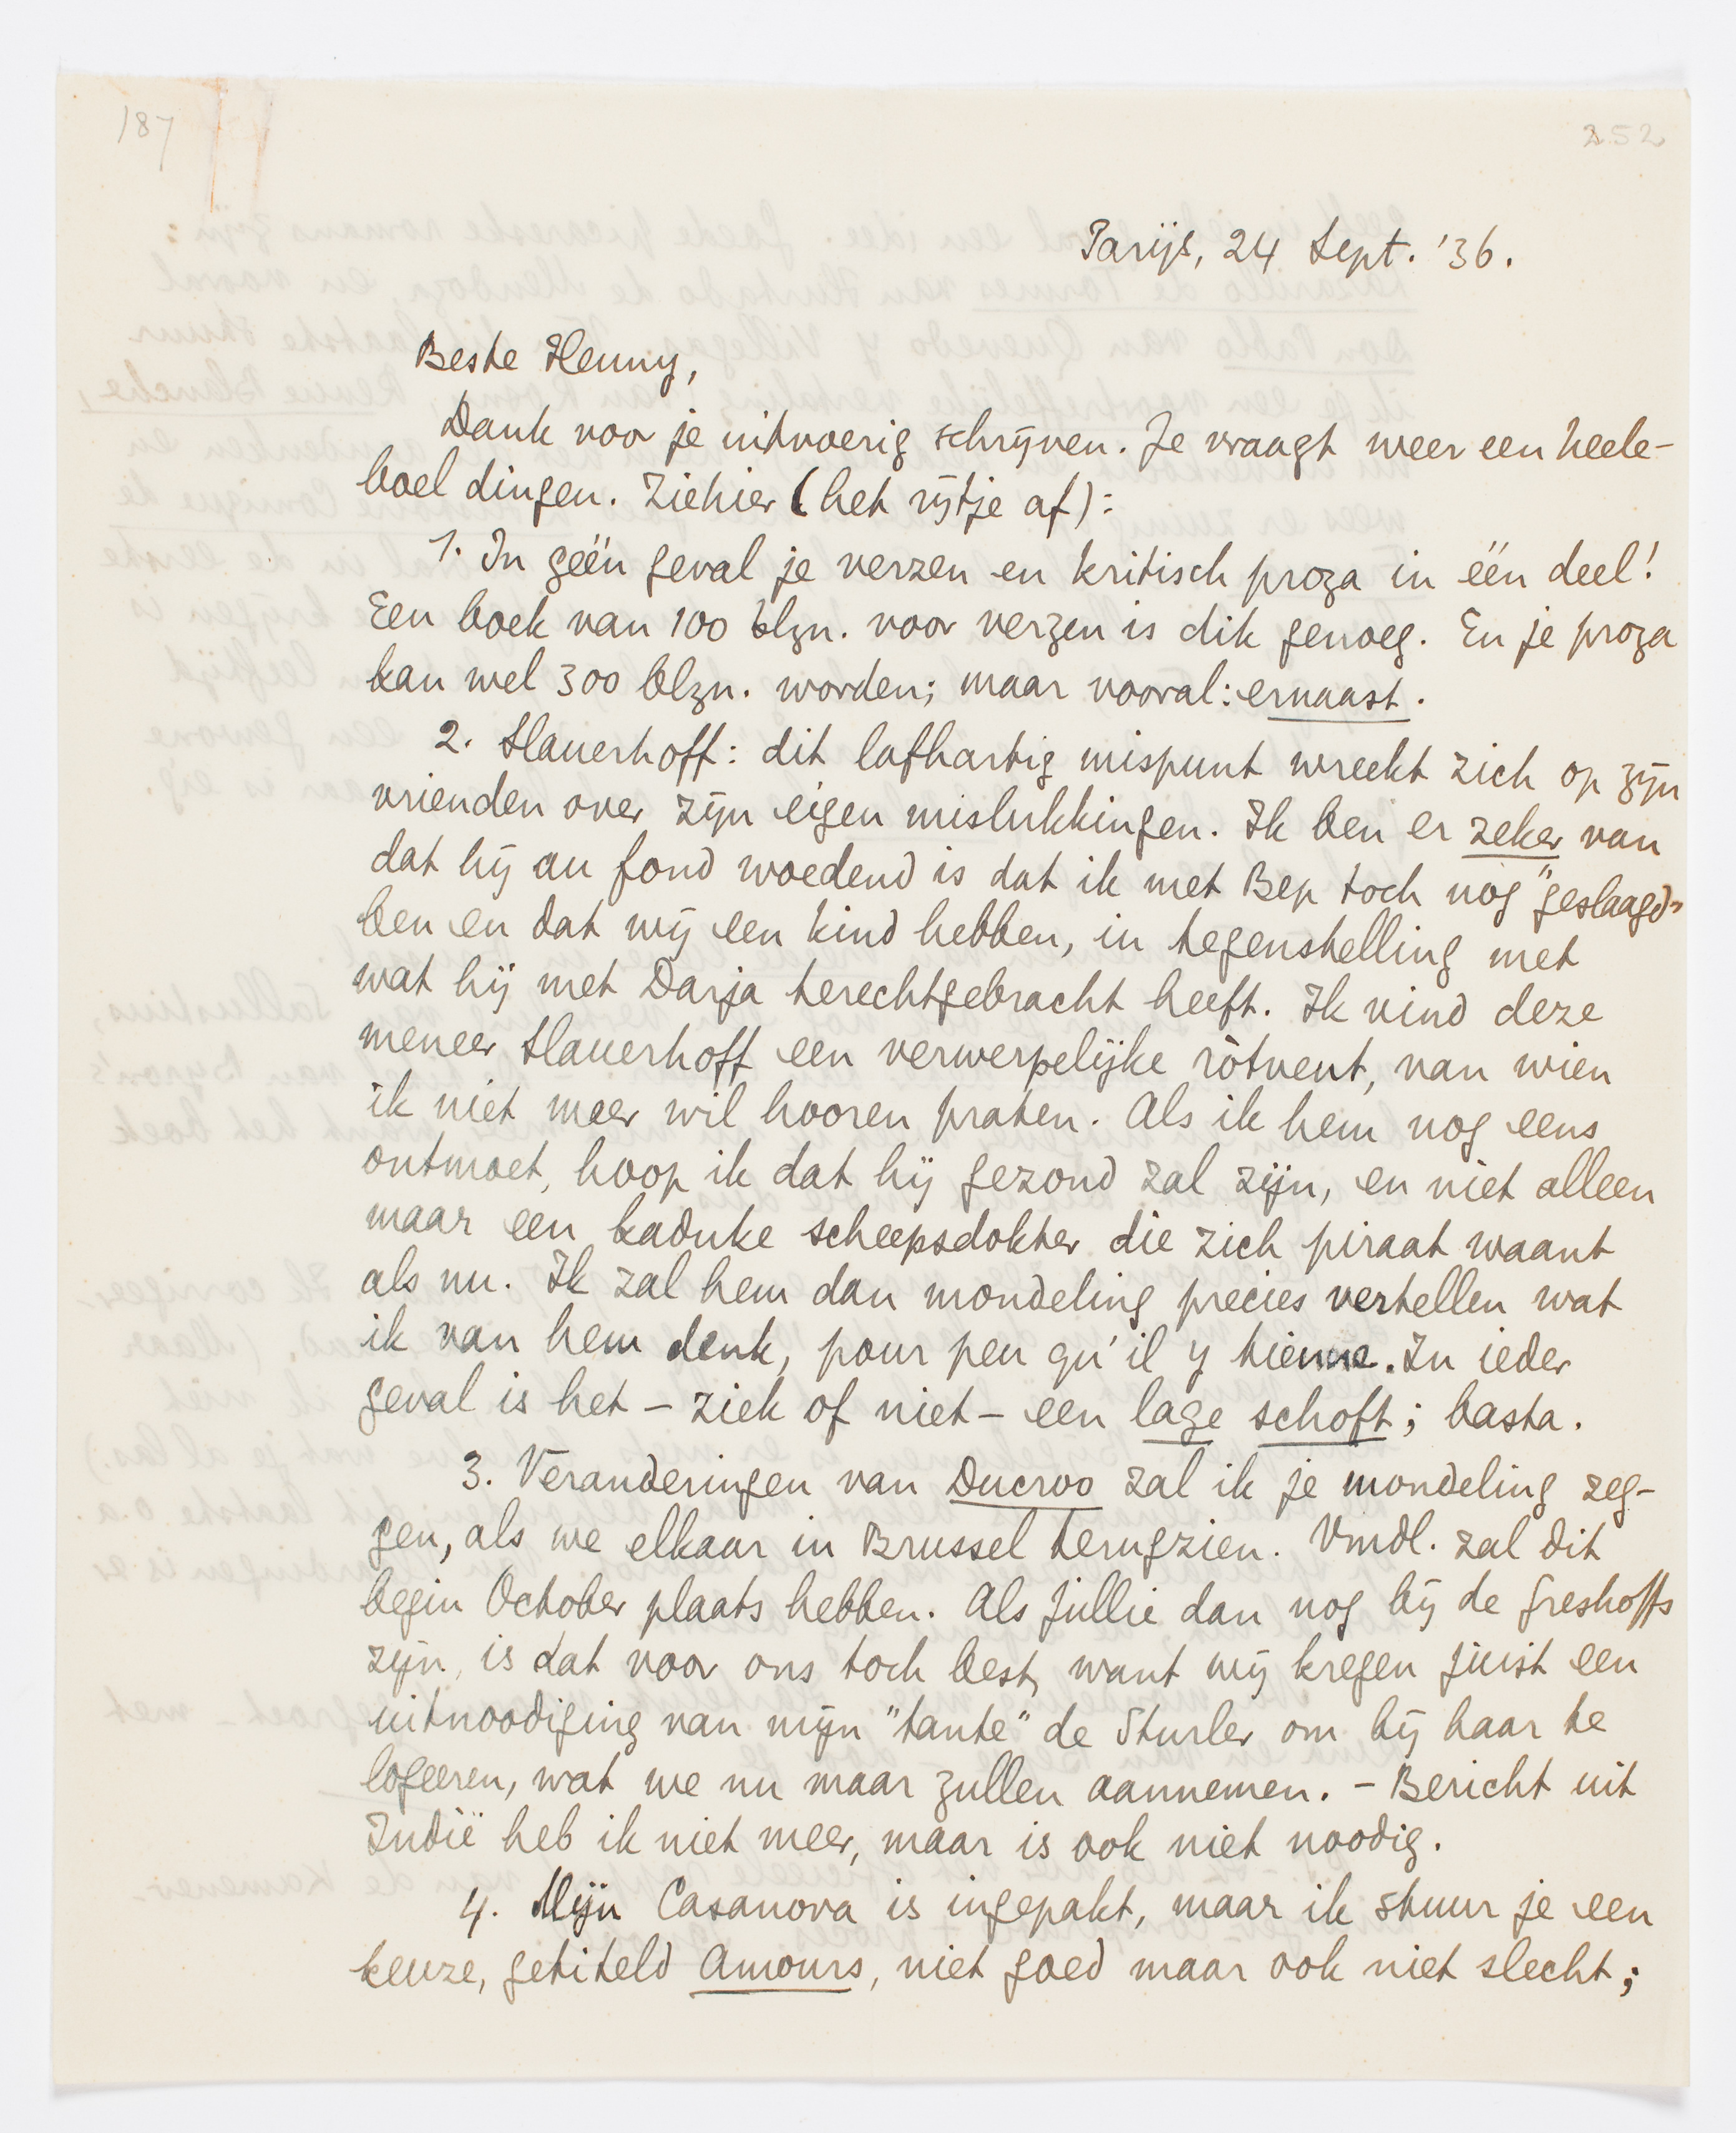 187
252
Parijs, 24 Sept. '36.
Beste Henny,
Dank voor je uitvoerig schrijven. Je vraagt weer een heele-
boel dingen. Ziehier (het rijtje af):
1. In géén geval je verzen en kritisch proza in één deel!
Een boek van 100 blzn. voor verzen is dik genoeg. En je proza
kan wel 300 blzn. worden; maar vooral: ernaast.
2. Slauerhoff: dit lafhartig mispunt wreekt zich op zijn
vrienden over zijn eigen mislukkingen. Ik ben er zeker van
dat hij au fond woedend is dat ik met Bep toch nog "geslaagd"
ben en dat wij een kind hebben, in tegenstelling met
wat hij met Darja terechtgebracht heeft. Ik vind deze
meneer Slauerhoff een verwerpelijke ròtvent, van wien
ik niet meer wil hooren praten. Als ik hem nog eens
ontmoet, hoop ik dat hij gezond zal zijn, en niet alleen
maar een kaduke scheepsdokter die zich piraat waant
als nu. Ik zal hem dan mondeling precies vertellen wat
ik van hem denk, pour peu qu'il y tienne. In ieder
geval is het – ziek of niet – een lage schoft; basta.
3. Veranderingen van Ducroo zal ik je mondeling zeg-
gen, als we elkaar in Brussel terugzien. Vmdl. zal dit
begin October plaats hebben. Als jullie dan nog bij de Greshoffs
zijn, is dat voor ons toch best, want wij kregen juist een
uitnoodiging van mijn "tante" de Sturler om bij haar te
logeeren, wat we nu maar zullen aannemen. – Bericht uit
Indië heb ik niet meer, maar is ook niet noodig.
4. Mijn Casanova is ingepakt, maar ik stuur je een
keuze, getiteld Amours, niet goed maar ook niet slecht;